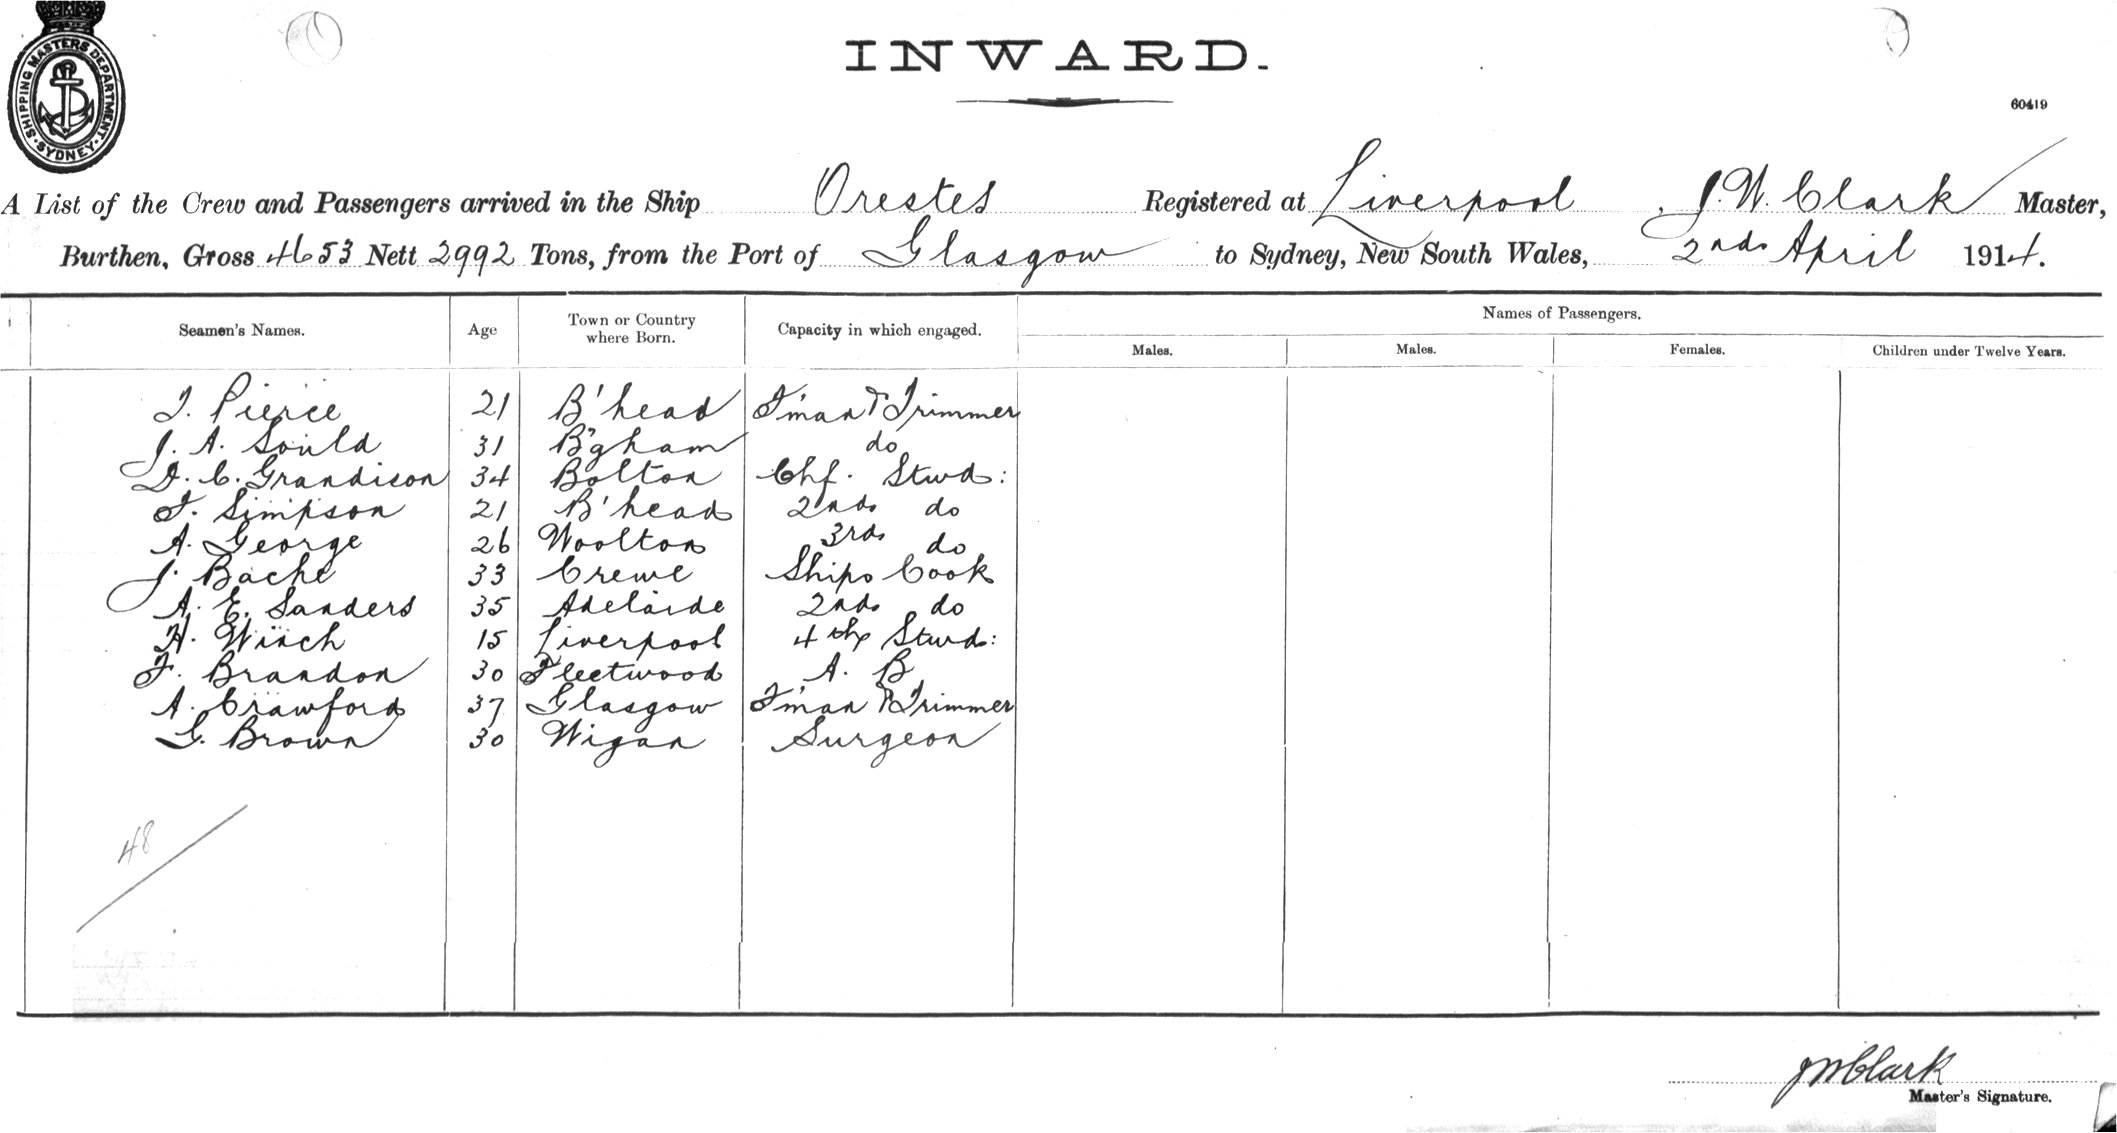 SHIPPING MASTERS DEPARTMENT. SYDNEY
INWARD.
60419
A List of the Crew and Passengers arrived in the Ship Orestes Registered at Liverpool, J. W. Clark Master,
Burthen, Gross 4653 Nett 2992 Tons, from the Port of Glasgow to Sydney, New South Wales, 2nd April 1914.
Seamen's Names. Age Town or Country where Born. Capacity in which engaged. Names of Passengers.
Males. Males. Females. Children under Twelve Years.
Pierce 21 B'head F'man & Trimmer
J. A. Sould 31 B'gham do
C. Grandison 34 Bolton Chf. Stwd:
Simpson 21 B'head 2nd do
A. George 26 Woolton 3rd do
J. Bache 33 Crewe Ships Cook
A. E. Sanders 35 Adelaide 2nd do
H. Winch 15 Liverpool 4th Stwd:
F. Brandon 30 Fleetwood A. B
A. Crawford 37 Glasgow F'man & Trimmer
G. Brown 30 Wigan Surgeon
48
JWClark
Master's Signature.